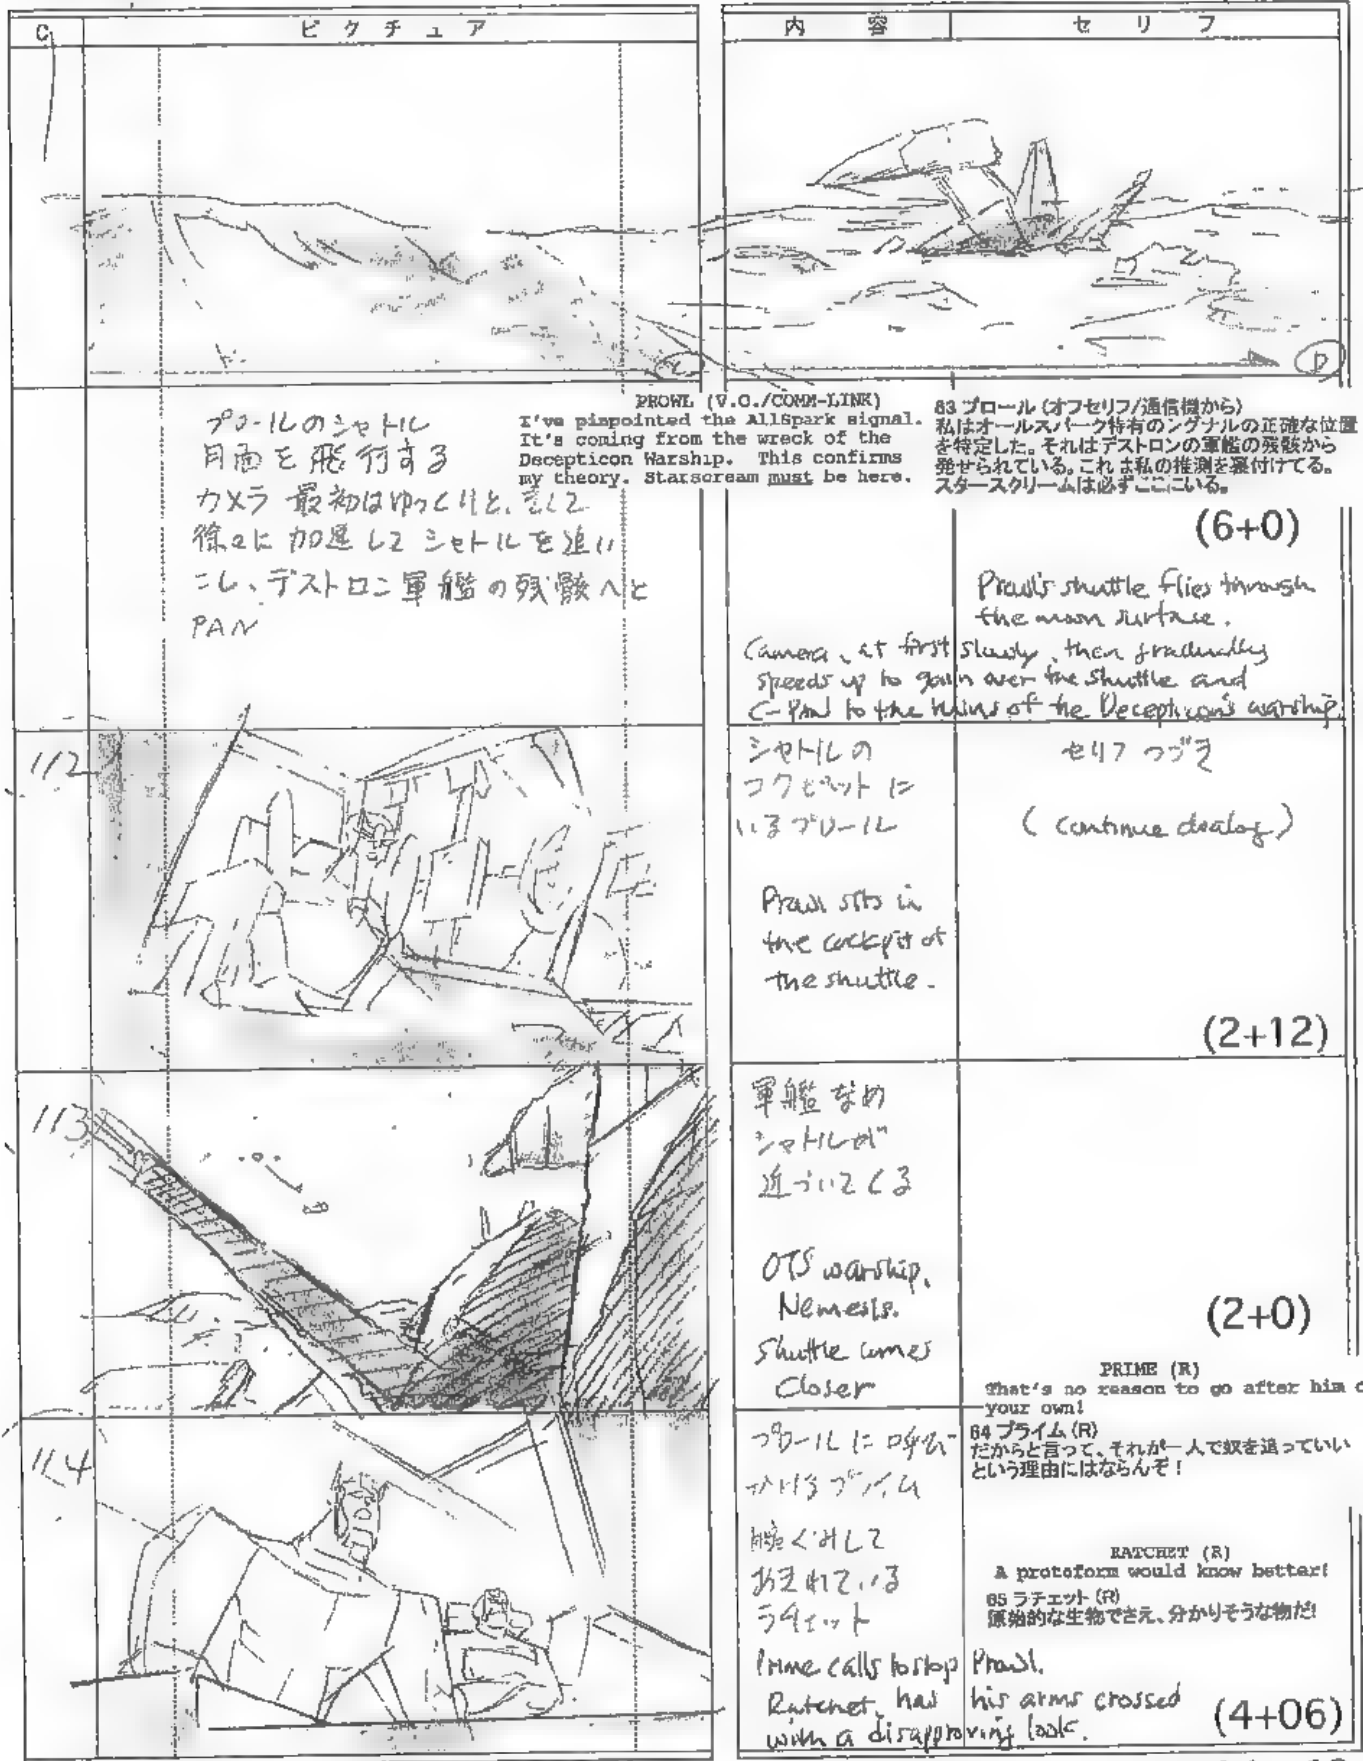 C
ピクチュア
内容
セリフ
D
プロールのシャトル
月面を飛行する
カメラ 最初はゆっくりと、そして
徐々に加速してシャトルを追い
こし、デストロン軍艦の残骸へと
PAN
PROWL (V.O./COMM-LINK)
I've pinpointed the AllSpark signal.
It's coming from the wreck of the
Decepticon Warship. This confirms
my theory. Starscream must be here.
83 プロール (オフセリフ/通信機から)
私はオールスパーク特有のシグナルの正確な位置
を特定した。それはデストロンの軍艦の残骸から
発せられている。これは私の推測を裏付けてる。
スタースクリームは必ずここにいる。
(6+0)
Prowl's shuttle flies through
the moon surface.
Camera, at first slowly, then gradually
speeds up to gain over the shuttle and
C-PAN to the ruins of the Decepticon's warship.
112
シャトルの
コクピットに
いるプロール
Prowl sits in
the cockpit of
the shuttle.
セリフつづき
(continue dialog)
(2+12)
113
軍艦なめ
シャトルが
近づいてくる
OTS warship.
Nemesis.
Shuttle comes
Closer
(2+0)
PRIME (R)
That's no reason to go after him
your own!
114
プロールに呼び
かけるプライム
腕ぐみして
あきれている
ラチェット
84 プライム (R)
だからと言って、それが一人で奴を追っていい
という理由にはならんぞ!
RATCHET (R)
A protoform would know better!
85 ラチェット (R)
原始的な生物でさえ、分かりそうな物だ!
Prime calls to stop Prowl.
Ratchet, has his arms crossed
with a disapproving look.
(4+06)